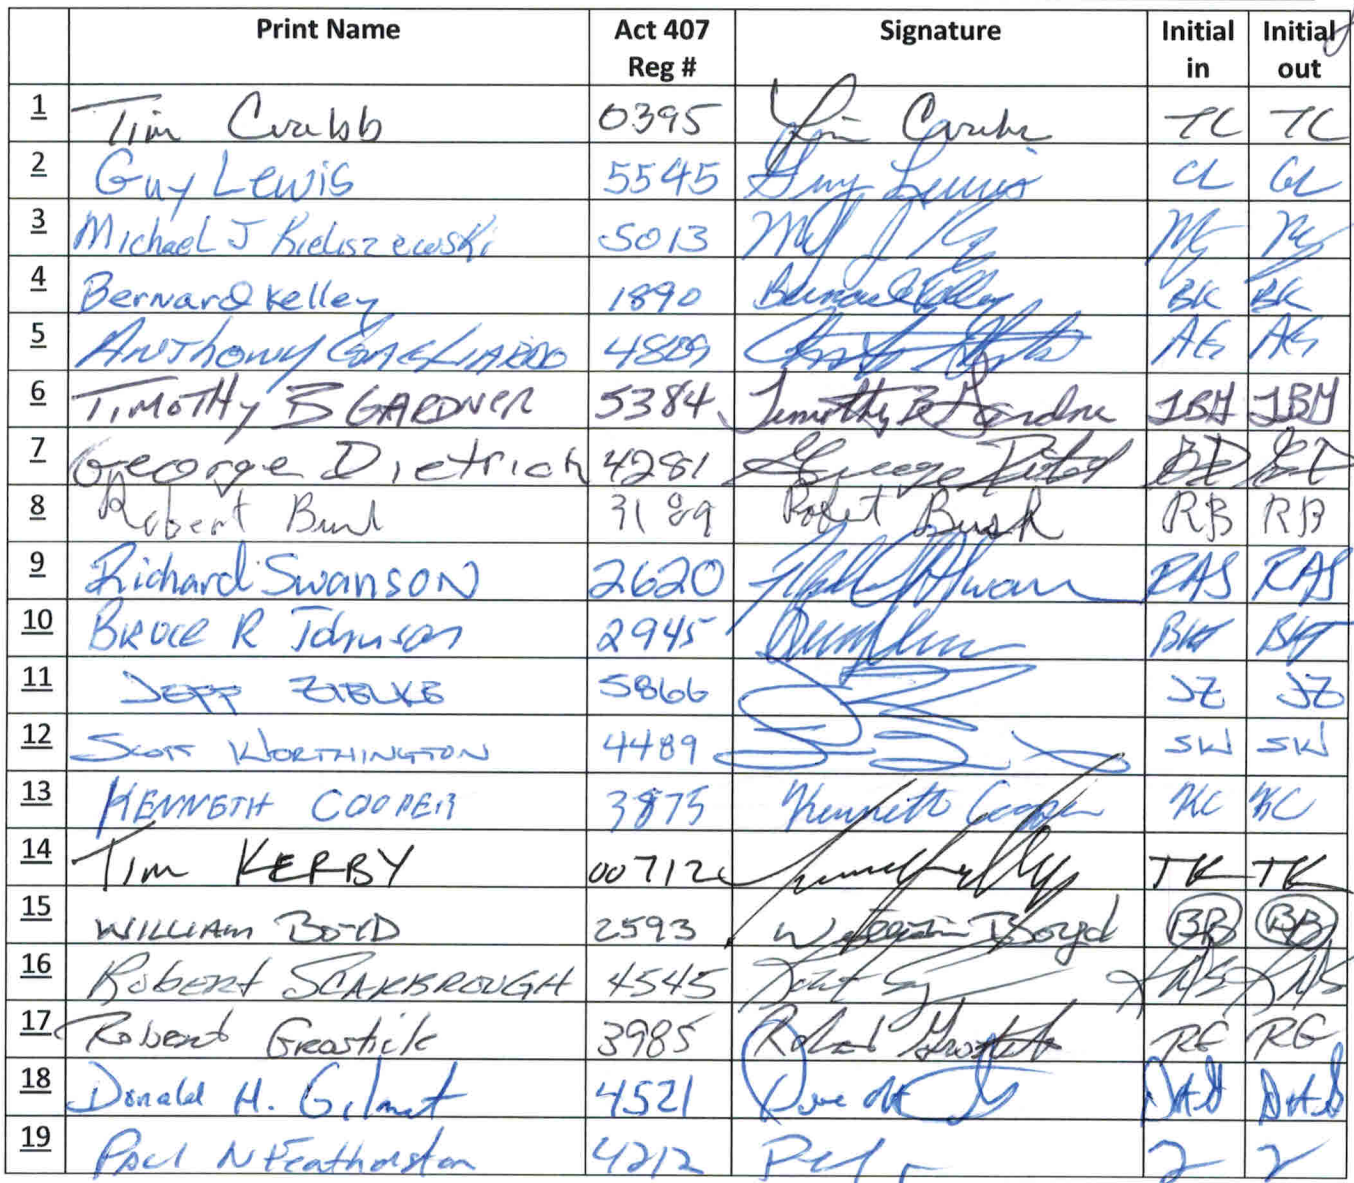 Print Name Act 407 Reg # Signature Initial in Initial out
1 Tim Crabb 0395 Tim TC TC
2 Guy Lewis 5545 Guy Lewis GL GL
3 Michael J Kieliszewski 5013
4 Bernard Kelley 1890 Bernard Kelley BK BK
5 Anthony Gagliardo 4809 AG AG
6 TIMOTHY B GARDNER 5384 Timothy B Gardner TBG TBG
7 George Dietrich 4281 George GD GD
8 Robert 3189 Robert Bush RB RB
9 Richard Swanson 2620 RAS RAS
10 Bruce R Johnson 2945 BRJ BRJ
11 JEFF ZIELKE 5866 JZ JZ
12 SCOTT WORTHINGTON 4489 SW SW
13 KENNETH COOPER 3875 Kenneth Cooper KC KC
14 Tim KERBY 00712 TK TK
15 WILLIAM BOYD 2593 Boyd BB BB
16 Robert SCARBROUGH 4545
17 Robert Grostick 3985 Robert RG RG
18 Donald H. Gilmet 4521
19 Paul N Featherston 4212